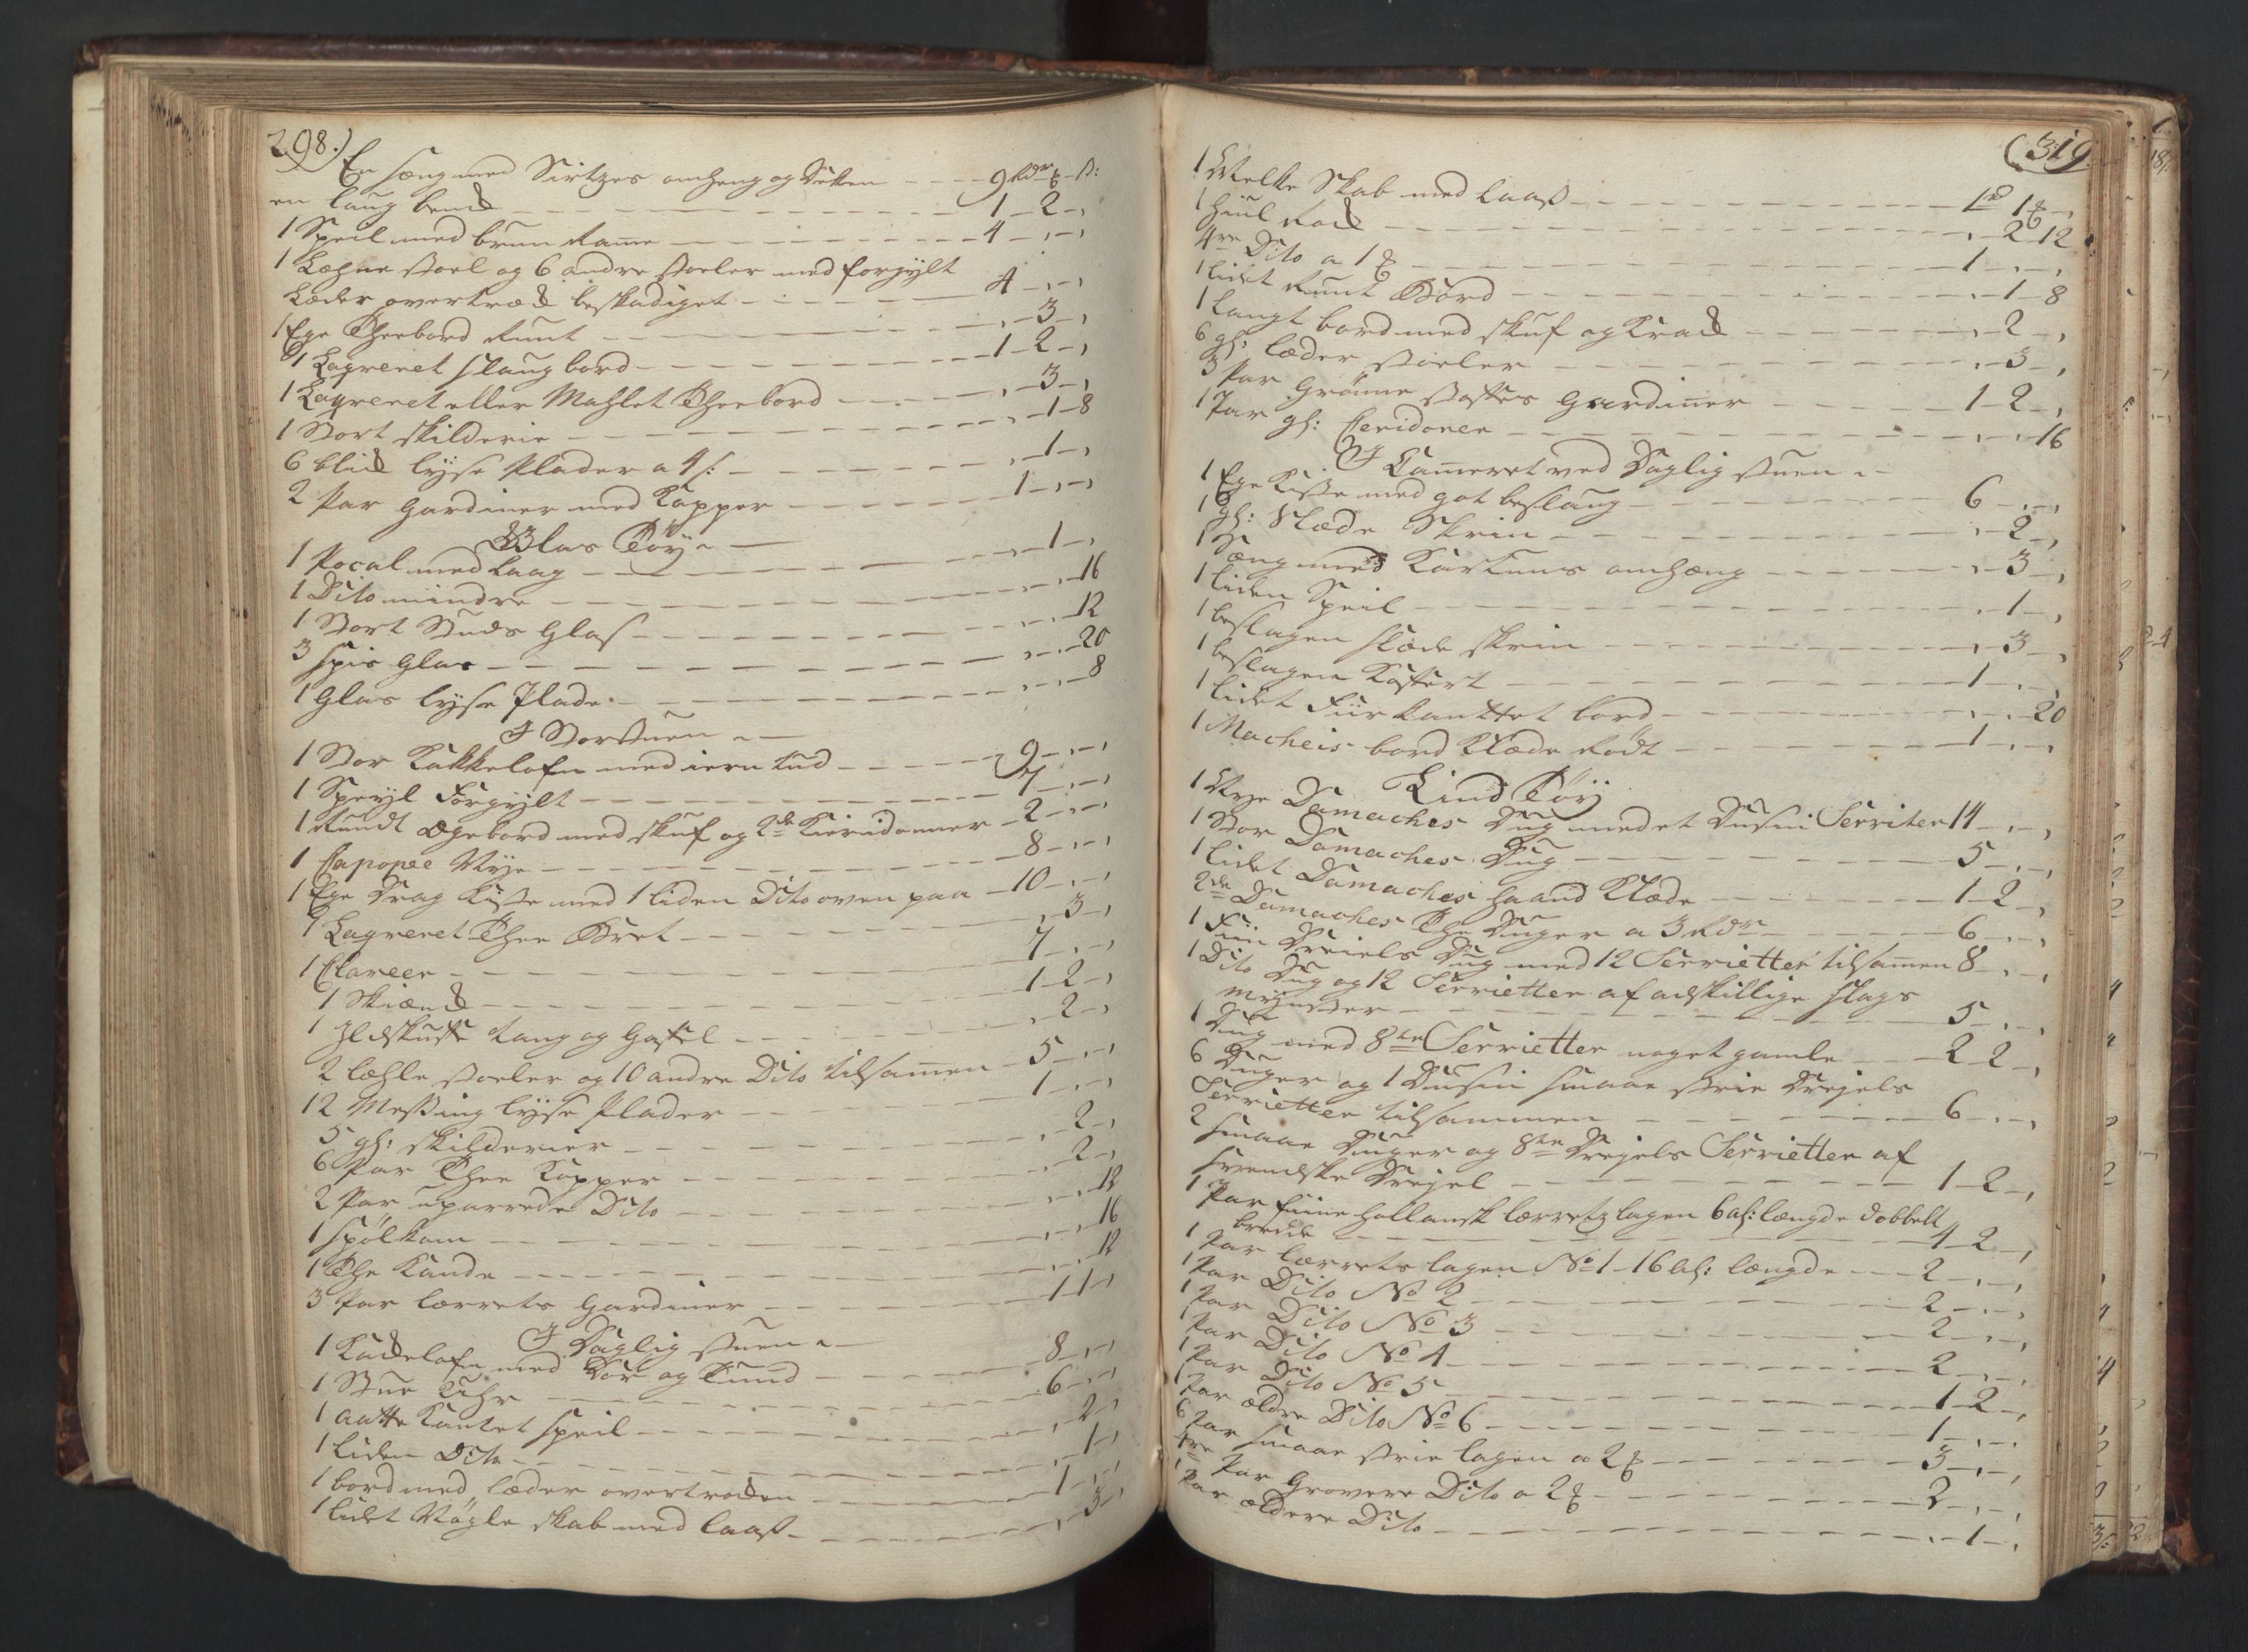 298.)
En seng med Sirtzes omheng og Dekken - - - 9 Rdr - ß:
en lang benk - - - 1 - 2 -,
1 Speil med brun Rame - - - 4 -,-,
1 Læhne stoel og 6 andre stoeler med forgylt
Læder overtræk beskadiget - - - 4 -,-,
1 Ege Theebord Runt - - - ,- 3 -,
1 Laqveret slaug bord - - - 1 - 2 -,
1 Laqveret eller Mahlet Theebord - - - ,- 3 -,
1 Stort skilderie - - - ,- 1 - 8
6 blik lyse Plader a 4 ß: - - - ,- 1 -,
2 Par Gardiner med Kapper - - - 1 -,-,
Glas Töy
1 Pocal med Laag - - - ,- 1 -,
1 Dito mindre - - - ,-,- 16
1 Stort Studs Glas - - - ,-,- 12
3 spis Glas - - - ,-,- 20
1 Glas lyse Plade - - - ,-,- 8
I Storstuen
1 Stor Kakkelofn med iern tud - - - 9 -,-,
1 Speyl Forgyllt - - - 7 -,-,
1 Rundt Egebord med skuf og 2de Kieridonner - 2 -,-,
1 Capopee Nye - - - 8 -,-,
1 Ege Drag Kiste med 1 liden Dito oven paa - 10 -,-,
1 Laqveret Thee Bret - - - ,- 3 -,
1 Claveer - - - 7 -,-,
1 Skiænk - - - 1 - 2 -,
1 Ildskuffe tang og Gaffel - - - ,- 2 -,
2 læhle stoeler og 10 andre Dito tilsamen - 5 -,-,
12 Messing lyse Plader - - - 1 -,-,
5 gl: skilderier - - - ,- 2 -,
6 Par Thee Kopper - - - ,- 2 -,
2 Par uparrede Dito - - - ,-,- 12
1 spölkom - - - ,-,- 16
1 The Kande - - - ,-,- 12
3 Par lærrets Gardiner - - - 1 - 1 -,
I Daglig stuen
1 Kakelofn med Dör og Tund - - - 8 -,-,
1 Stue Uhr - - - 6 -,-,
1 aatte Kantet speil - - - ,- 2 -,
1 liden Dito - - - ,- 1 -,
1 bord med læder overtrokken - - - 1 -,-,
1 lidet Nögle skab med laas - - - ,- 3 -,
(319.
1 Melke Skab med laas - - - 1 - 1 -,
1 Hiul Rok - - - ,- 2 - 12
4re Dito a 1 - - - 1 -,-,
1 lidet Runt Bord - - - ,- 1 - 8
1 Langt bord med skuf og Krak - - - ,- 2 -,
6 gl: læder stoeler - - - ,- 3 -,
3 Par Grönne stoffes Gardiner - - - 1 - 2 -,
1 Par gl: Geridoner - - - ,-,- 16
I Cameret ved Daglig stuen
1 Ege Kiste med got beslaug - - - 6 -,-,
1 gl: Slæde Skrin - - - ,- 2 -,
1 Seng med Kartuns omhæng - - - ,- 3 -,
1 liden Speil - - - ,- 1 -,
1 beslagen slæde skrin - - - ,- 3 -,
1 beslagen Koffert - - - 1 -,-,
1 lidet Fiirkanttet bord - - - ,-,- 20
1 Macheis bord Klæde Rödt - - - 1 -,-,
Lind Töy
1 Nye Damaches Dug med et Dusin Serviter 14 -,-,
1 Stor Damaches Dug - - - 5 -,-,
1 lidet Damaches haand Klæde - - - 1 - 2 -,
2de Damaches The Duger a 3 Rdr - - - 6 -,-,
1 Fiin Dreiels Dug med 12 Servietter tilsamen 8 -,-,
1 Dito Dug og 12 Servietter af adskillige slags
mynster - - - 5 -,-,
1 Dug med 8te Servietter noget gamle - - - 2 - 2 -,
6 Duger og 1 Dusin smaae strie Drejels
Servietter tilsammen - - - 6 -,-,
2 smaae Duger og 8te Drejels Servietter af
svendske Drejel - - - 1 - 2 -,
1 Par fiine hollansk lærrets lagen 6 al: længde dobbelt
bredde - - - 4 - 2 -,
1 Par lærrets lagen No 1 - 16 al: længde - - - 2 -,-,
1 Par Dito No 2 - - - 2 -,-,
1 Par Dito No 3 - - - 2 -,-,
1 Par Dito No 4 - - - 2 -,-,
1 Par Dito No 5 - - - 1 - 2 -,
1 Par ældre Dito No 6 - - - 1 -,-,
6 Par smaae strie lagen a 2 - - - 3 -,-,
4re Par Grovere Dito a 2 - - - 2 -,-,
1 Par ældere Dito - - - ,- 1 -,